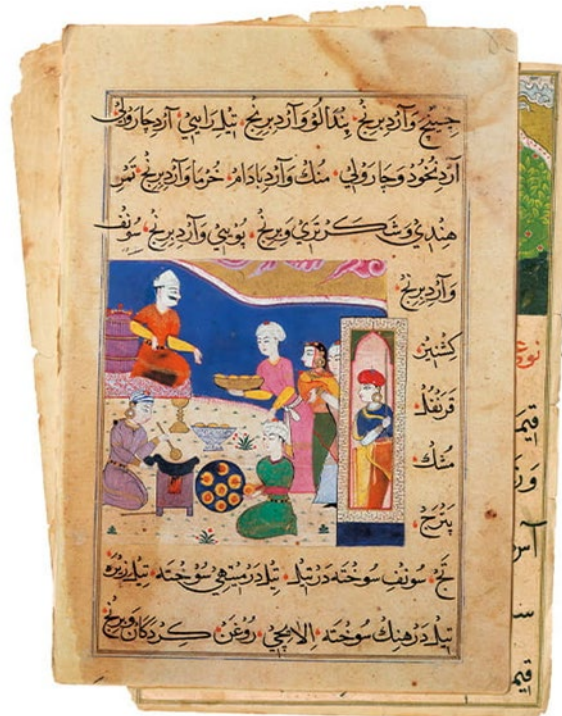 وآرد برنج پندالو وآرد برنج تیل راهی آرد چارولی
آرد نخود و چارولی منک وآرد بادام خرما وآرد برنج تمر
هندی و شکر تری و برنج وآرد برنج سونف
وآرد برنج
کشنیز
قرنفل
مشک
پترج
تج سونف سوخته در تیل تیل در میتهی سوخته تیل زیره
تیل در هنک سوخته الایچی روغن کردکان و برنج